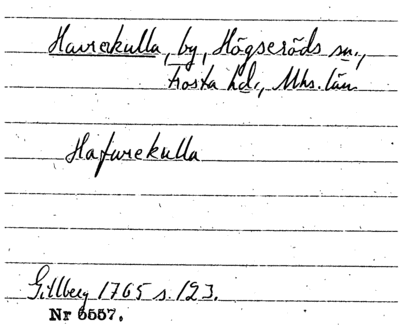 Havrekulla, by, Högseröds sn.,
Frosta hd., Mhs. län.
Hafwrekulla
Gillberg 1765 s. 123.
Nr 6557.